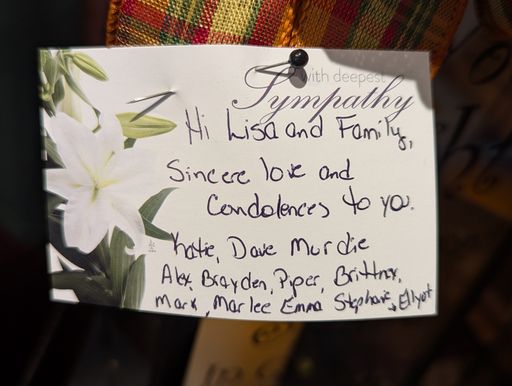 with deepest
Sympathy
Hi Lisa and Family,
Sincere love and
Condolences to you.
Katie, Dave Murdie
Alex, Brayden, Piper, Brittney,
Mark, Marlee Emma Stephanie, Ellyot